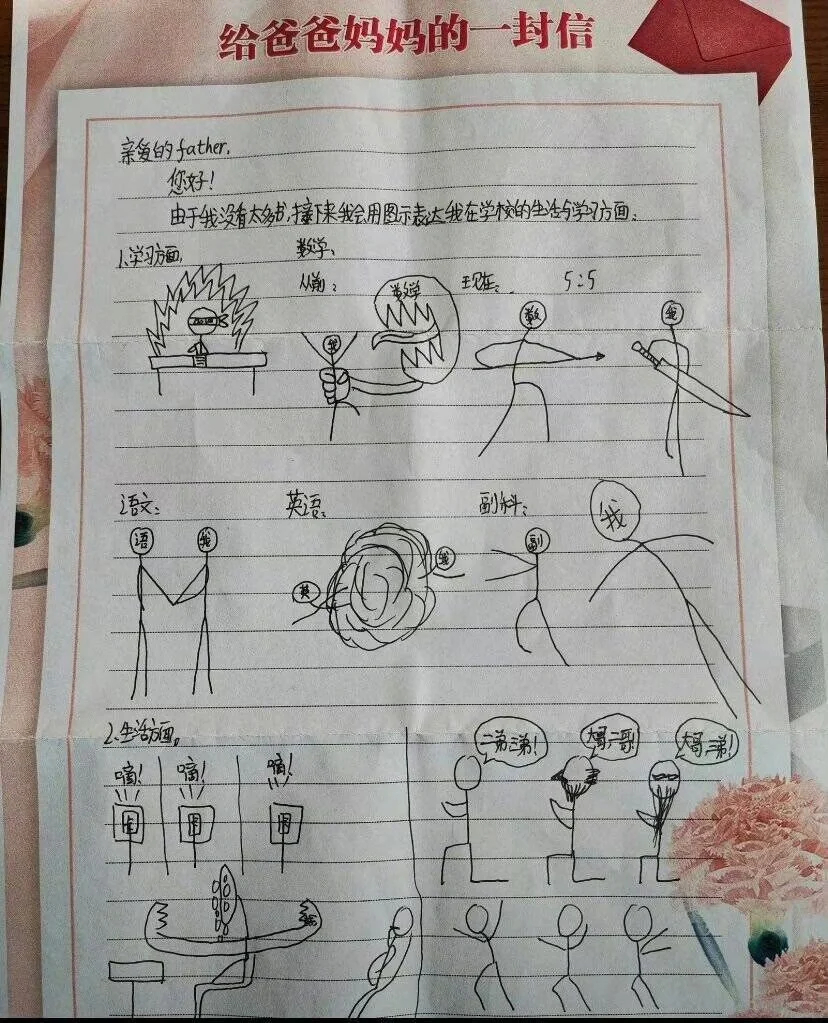 给爸爸妈妈的一封信
亲爱的father,
您好!
由于我没有太多书,接下来我会用图示表达我在学校的生活与学习方面:
1.学习方面,
数学:
从前:
数学
我
现在:
5:5
数
我
语文:
英语:
副科:
语
我
英
我
副
我
2.生活方面。
嘀!
嘀!
嘀!
卡
卡
卡
二弟三弟!
大哥二哥!
大哥三弟!